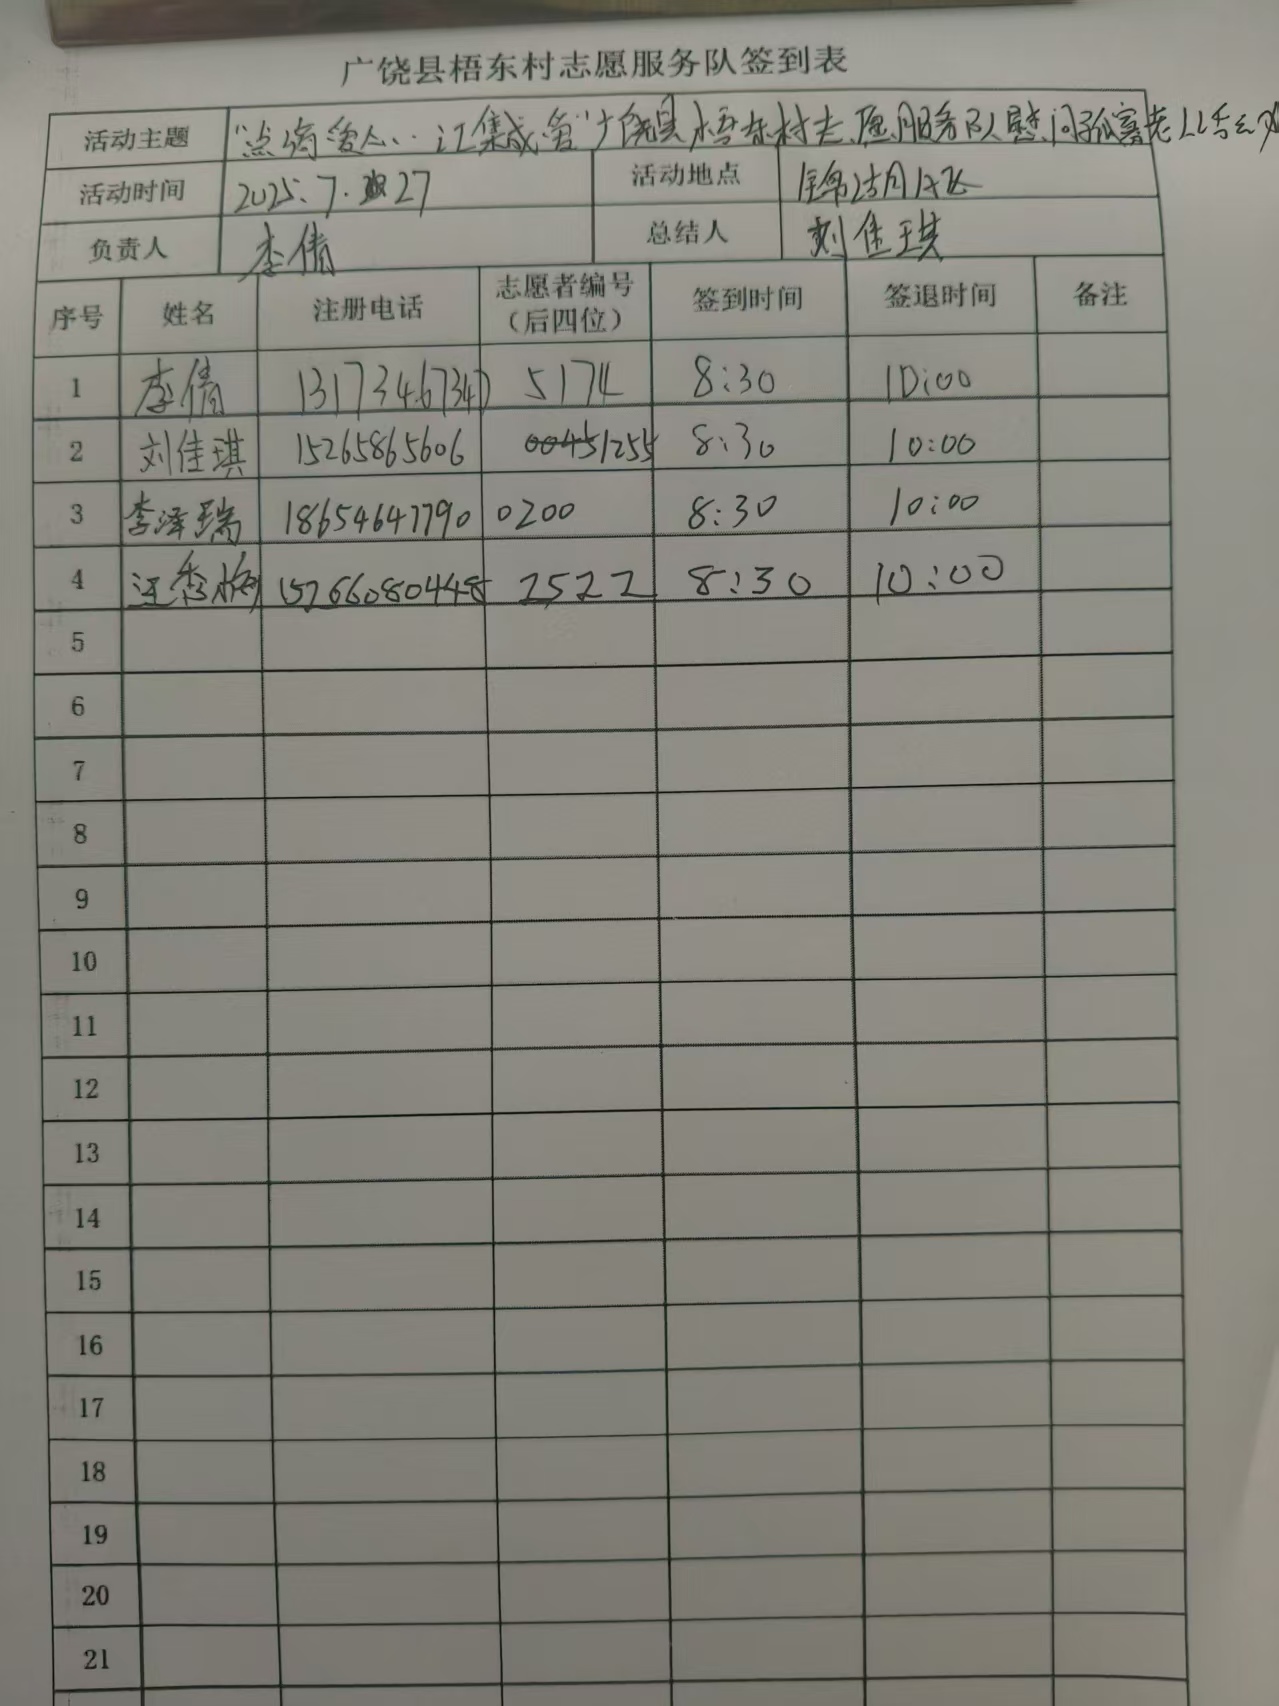 广饶县梧东村志愿服务队签到表
活动主题 "点滴 汇集成 "广饶县梧东村志愿服务队慰问孤寡老人活动
活动时间 2025.7.27 活动地点
负责人 李倩 总结人 刘佳琪
序号 姓名 注册电话 志愿者编号（后四位） 签到时间 签退时间 备注
1 李倩 13173467347 5174 8:30 10:00
2 刘佳琪 15265865606 1255 8:30 10:00
3 李泽瑞 18654647790 0200 8:30 10:00
4 汪香梅 15266080448 2522 8:30 10:00
5
6
7
8
9
10
11
12
13
14
15
16
17
18
19
20
21